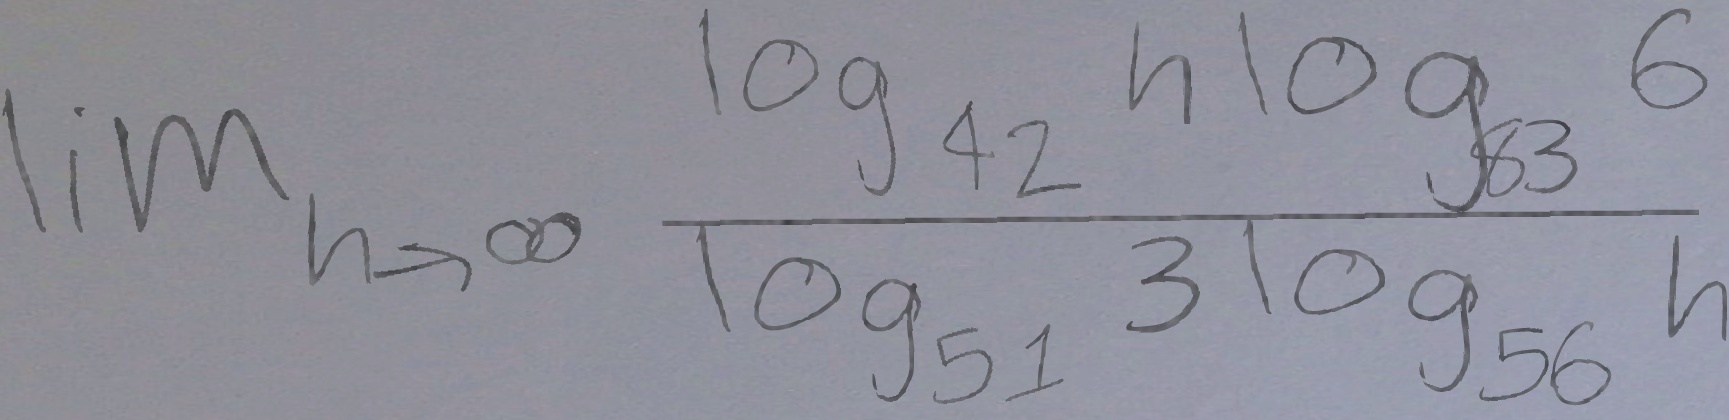 lim_{n→∞} \frac{log_{42} n log_{83} 6}{log_{51} 3 log_{56} n}